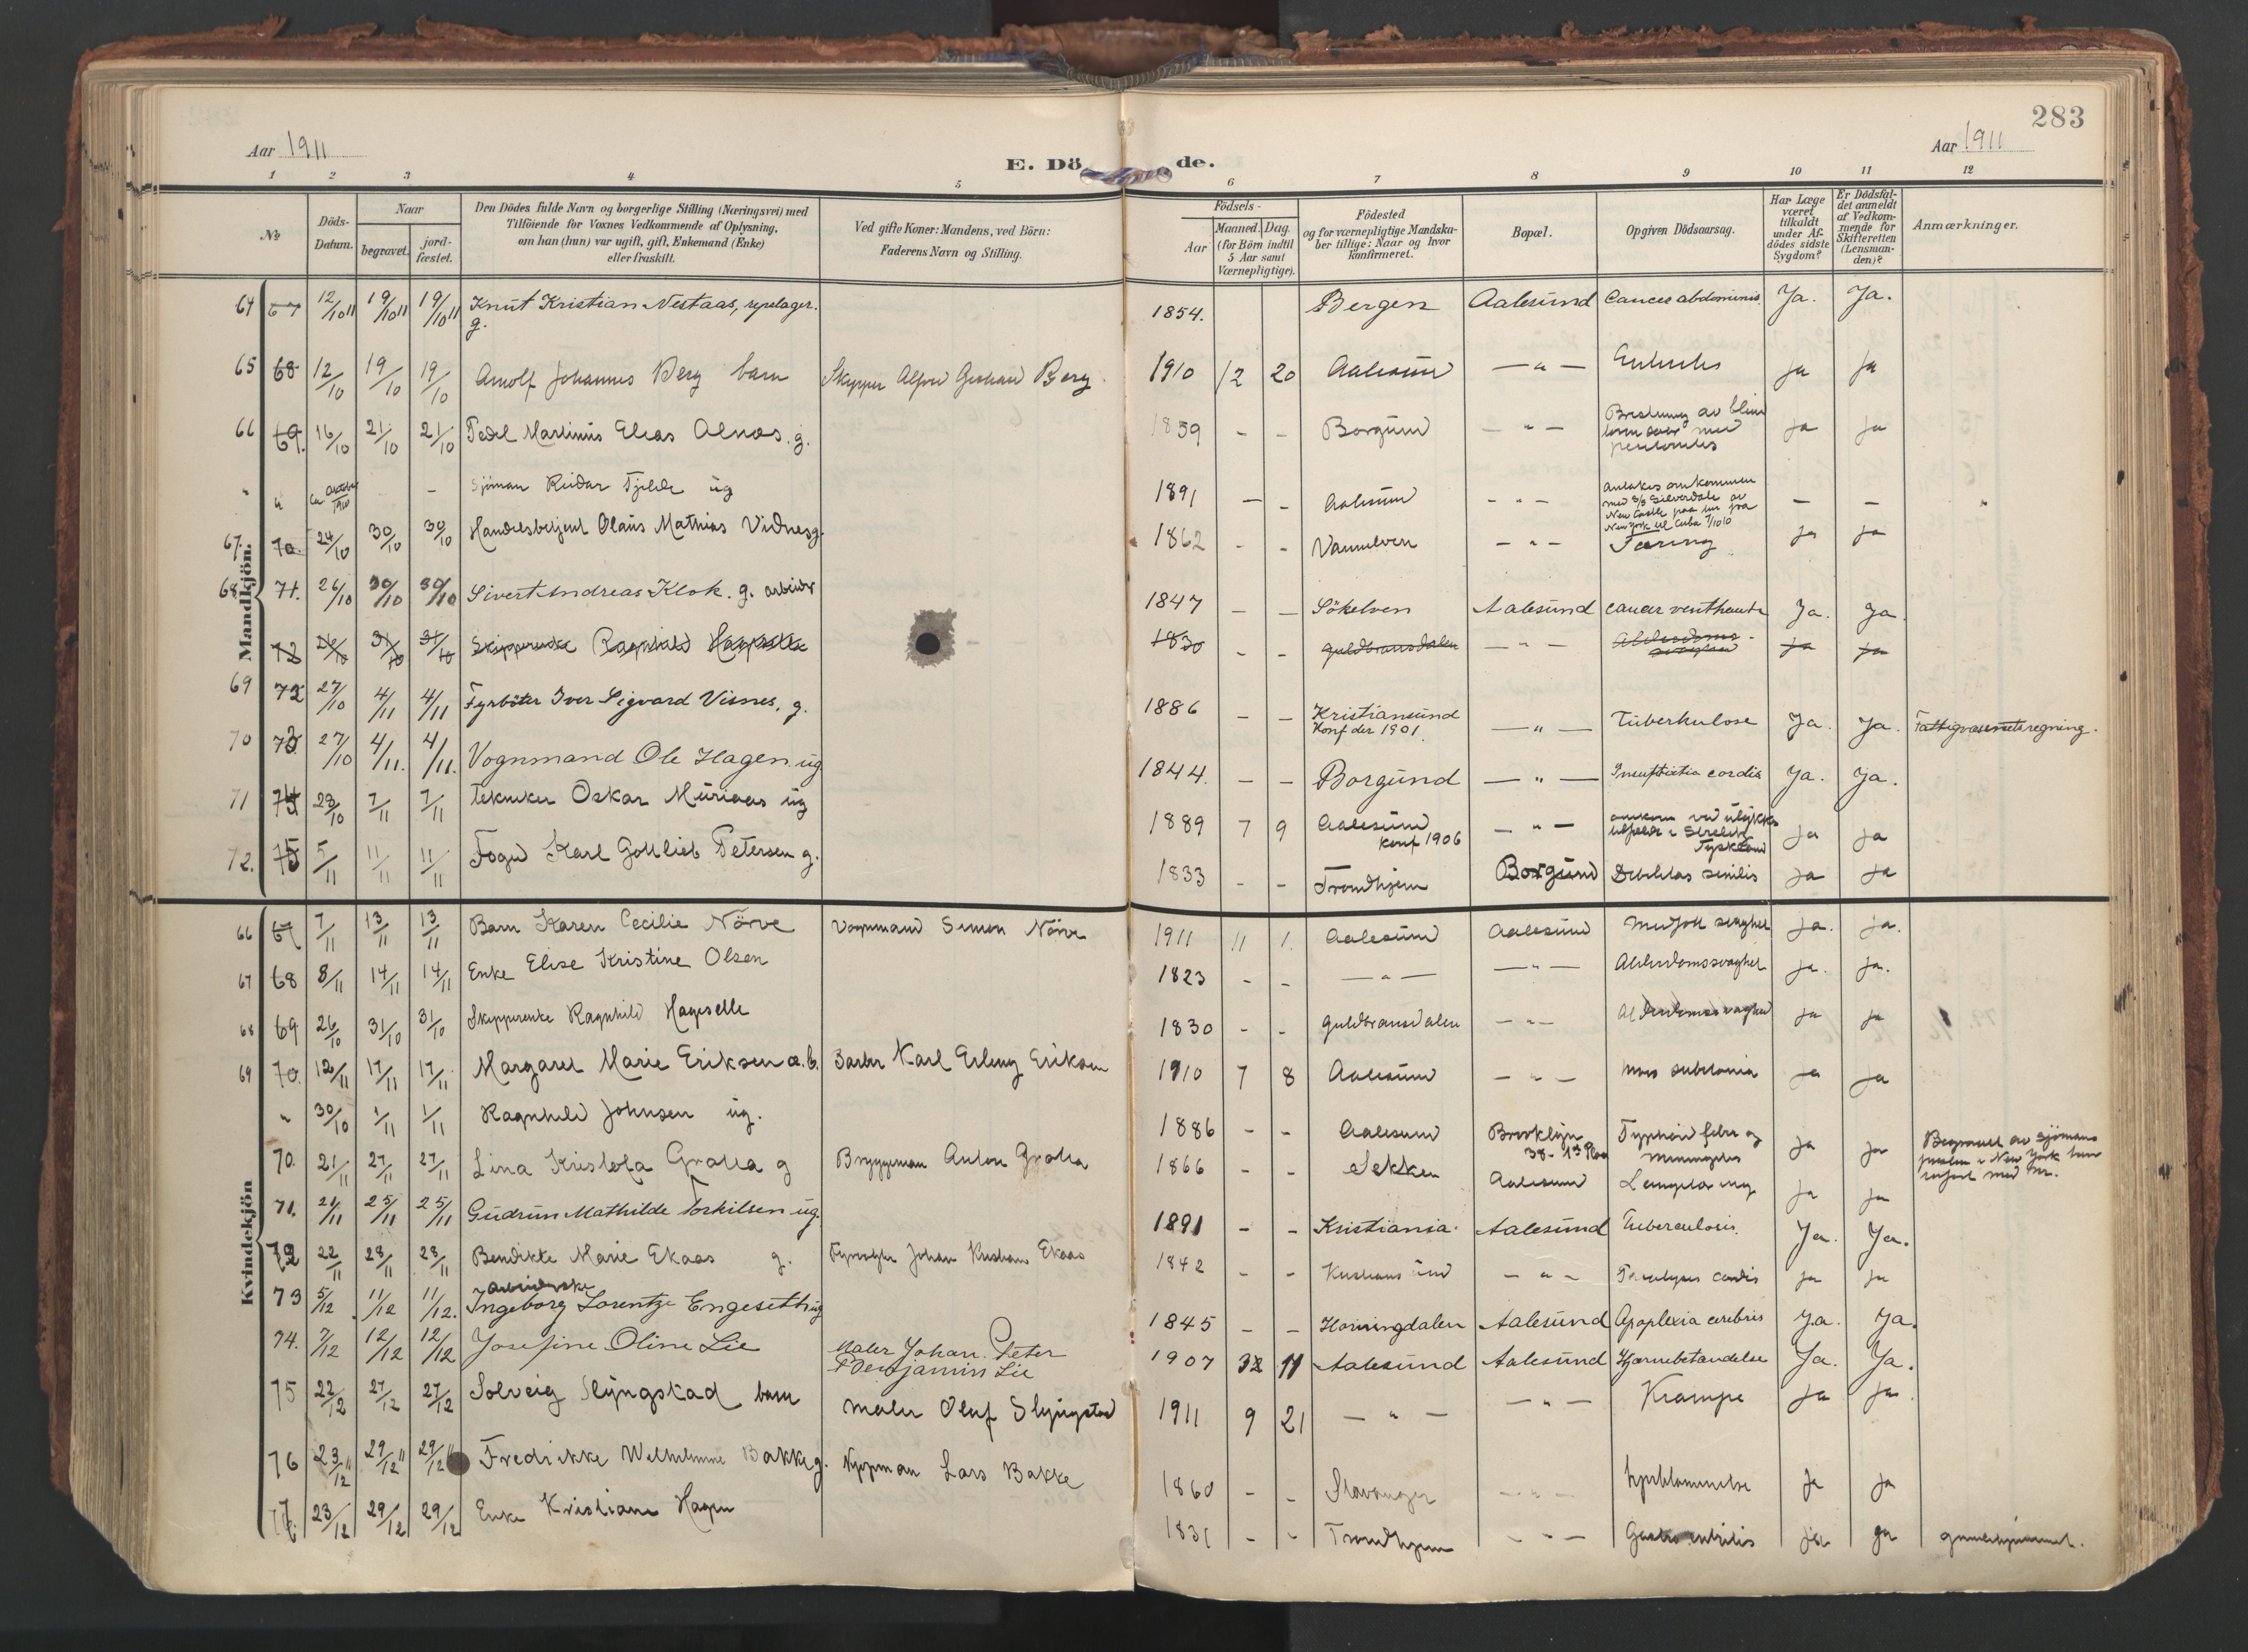 283
Aar 1911
E. Dö
de.
Aar 1911
1 2 3 4 5 6 7 8 9 10 11 12
No
Döds-
Datum.
Naar
begravet.
jord-
fæstet.
Den Dödes fulde Navn og borgerlige Stilling (Næringsvei) med
Tilföiende for Voxnes Vedkommende af Oplysning,
om han (hun) var ugift, gift, Enkemand (Enke)
eller fraskilt.
Ved gifte Koner: Mandens, ved Börn:
Faderens Navn og Stilling.
Födsels-
Aar
Maaned. Dag.
(for Börn indtil
5 Aar samt
Værnepligtige).
Födested
og for værnepligtige Mandska-
ber tillige: Naar og hvor
konfirmeret.
Bopæl.
Opgiven Dödsaarsag.
Har Læge
været
tilkaldt
under Af-
dödes sidste
Sygdom?
Er Dödsfal-
det anmeldt
af Vedkom-
mende for
Skifteretten
(Lensman-
den)?
Anmærkninger.
Mandkjön.
64 67 12/10 11 19/10 11 19/10 11 Knut Kristian Nestaas, repslager. 1854. Bergen Aalesund Cancer abdominis. Ja. Ja.
g.
65 68 12/10 19/10 19/10 Arnolf Johannes Berg barn Skipper Alfred Berg 1910 12 20 Aalesund — " — ja ja
66 69. 16/10 21/10 21/10 Pedel Martinus Elias Alnæs. g. 1859 - - Borgund — " — Bristning av blind
med
peritonitis ja ja
" " ca. October 1910 - Sjöman Reidar Fjelde ug 1891 — - Aalesund - " - Antakes omkommen
med S/S Silverdale av
New Castle paa tur fra
New York til Cuba 7/10 10 — —
67. 70. 24/10 30/10 30/10 Handelsbetjent Olaus Mathias Vidnes g. 1862 - - Vannelven — " — Tæring ja ja
68. 71. 26/10 30/10 30/10 Sivert Andreas Klok. g. arbeider 1847 — — Sökelven Aalesund cancer ventriculi Ja. Ja
72 26/10 31/10 31/10 Skipperenke Ragnhild Hageselle 1830 - - Guldbransdalen — " — ja ja
69 72 27/10 4/11 4/11 Fyrböter Iver Sigvard Visnes. g. 1886 — — Kristiansund
Konf der 1901. — " — Tuberkulose Ja. Ja. Fattigvæsenets regning.
70 73 27/10 4/11. 4/11. Vognmand Ole Hagen ug 1844. — — Borgund — " — Insufficientia cordis Ja. Ja.
71 74 28/10 7/11 7/11 Tekniker Oskar Muriaas ug 1889 7 9 Aalesund
konf 1906 — " — omkom ved ulykkes
tilfælde i Strelitz
Tyskland ja ja
72. 75 5/11 11/11 11/11 Foged Karl Gottlieb Petersen g. 1833 - - Trondhjem Borgund Debilitas senilis ja ja
Kvindekjön
66 67 7/11 13/11 13/11 Barn Karen Cecilie Nörve Vognmand Simon Nörve 1911 11 1. Aalesund Aalesund Medfödt svaghet ja. ja.
67 68 8/11 14/11 14/11 Enke Elise Kristine Olsen 1823 - - — " — — " — Alderdomssvaghet ja. ja.
68 69 26/10 31/10 31/10 Skipperenke Ragnhild Hageselle 1830 - - Guldbransdalen — " — Alderdomssvaghed ja ja
69 70. 12/11 17/11 17/11 Margaret Marie Eriksen æ. b. Barber Karl Erling Eriksen 1910 7 8 Aalesund — " — Mors subitanea ja ja
" 30/10 1/11 1/11 Ragnhild Johnsen ug. 1886 - - Aalesund Brooklyn
38 - 1st Typhoid feber og
Meningitis ja ja Begravet av Sjömans
presten i New York
70. 21/11 27/11 27/11 Lina Kristofa Grotta g Bryggeman Anton Grotta 1866 - - Sekken Aalesund ja ja
71. 21/11 25/11 25/11 Gudrun Mathilde Torkilsen ug. 1891 - - Kristiania. Aalesund Tuberculosis. Ja. Ja.
72 22/11 28/11 28/11 Bendikte Marie Ekaas g. Johan Kristian Ekaas 1842 - - Kristiansund — " — Paralysis cordis ja ja
73 5/12 11/12 11/12. Arbeiderske
Ingeborg Lorentze Engeseth ug 1845 — — Horningdalen Aalesund Apoplexia cerebris Ja. Ja.
74. 7/12 12/12 12/12 Josefine Oline Lie Maler Johan Peter
Benjamin Lie 1907 12 11 Aalesund Aalesund Hjernebetændelse Ja. Ja.
75 22/12 27/12 27/12 Solveig Slyngstad barn maler Oluf Slyngstad 1911 9 21 — " — — " — Krampe ja ja
76 23/12 11 29/12 11 29/12 11 Fredrikke Wilhelmine Bakke g. Lars Bakke 1860 - - Stavanger — " — hjertelammelse ja ja
77. 23/12 29/12 29/12 Enke Kristiane Hagen 1831 - - Trondhjem - " - Gastro enteritis ja ja gamlehjemmet.